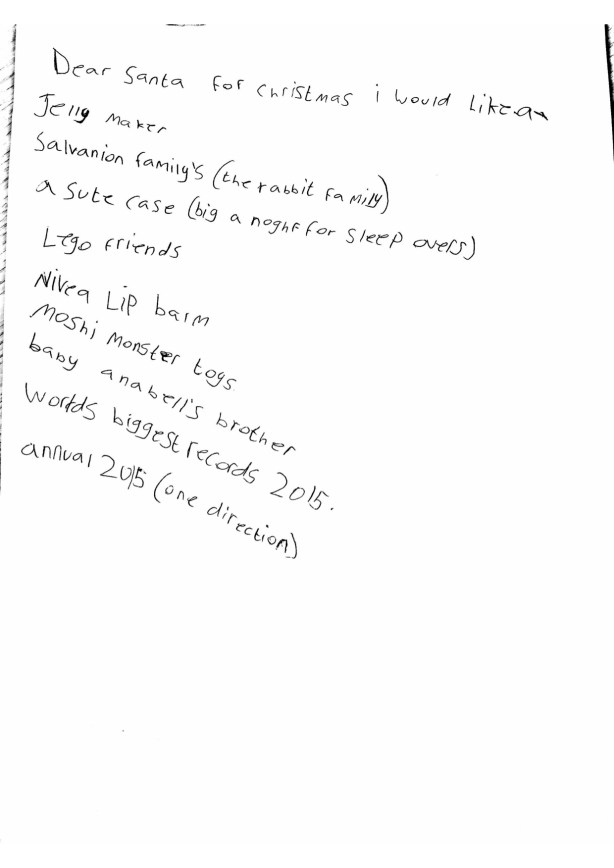 Dear Santa for christmas i would like a
Jelly maker
Salvanion family's (the rabbit family)
a sute case (big a noghf for sleep overs)
Lego friends
Nivea Lip barm
Moshi Monster toys
baby anabell's brother
Worlds biggest records 2015.
annual 2015 (one direction)